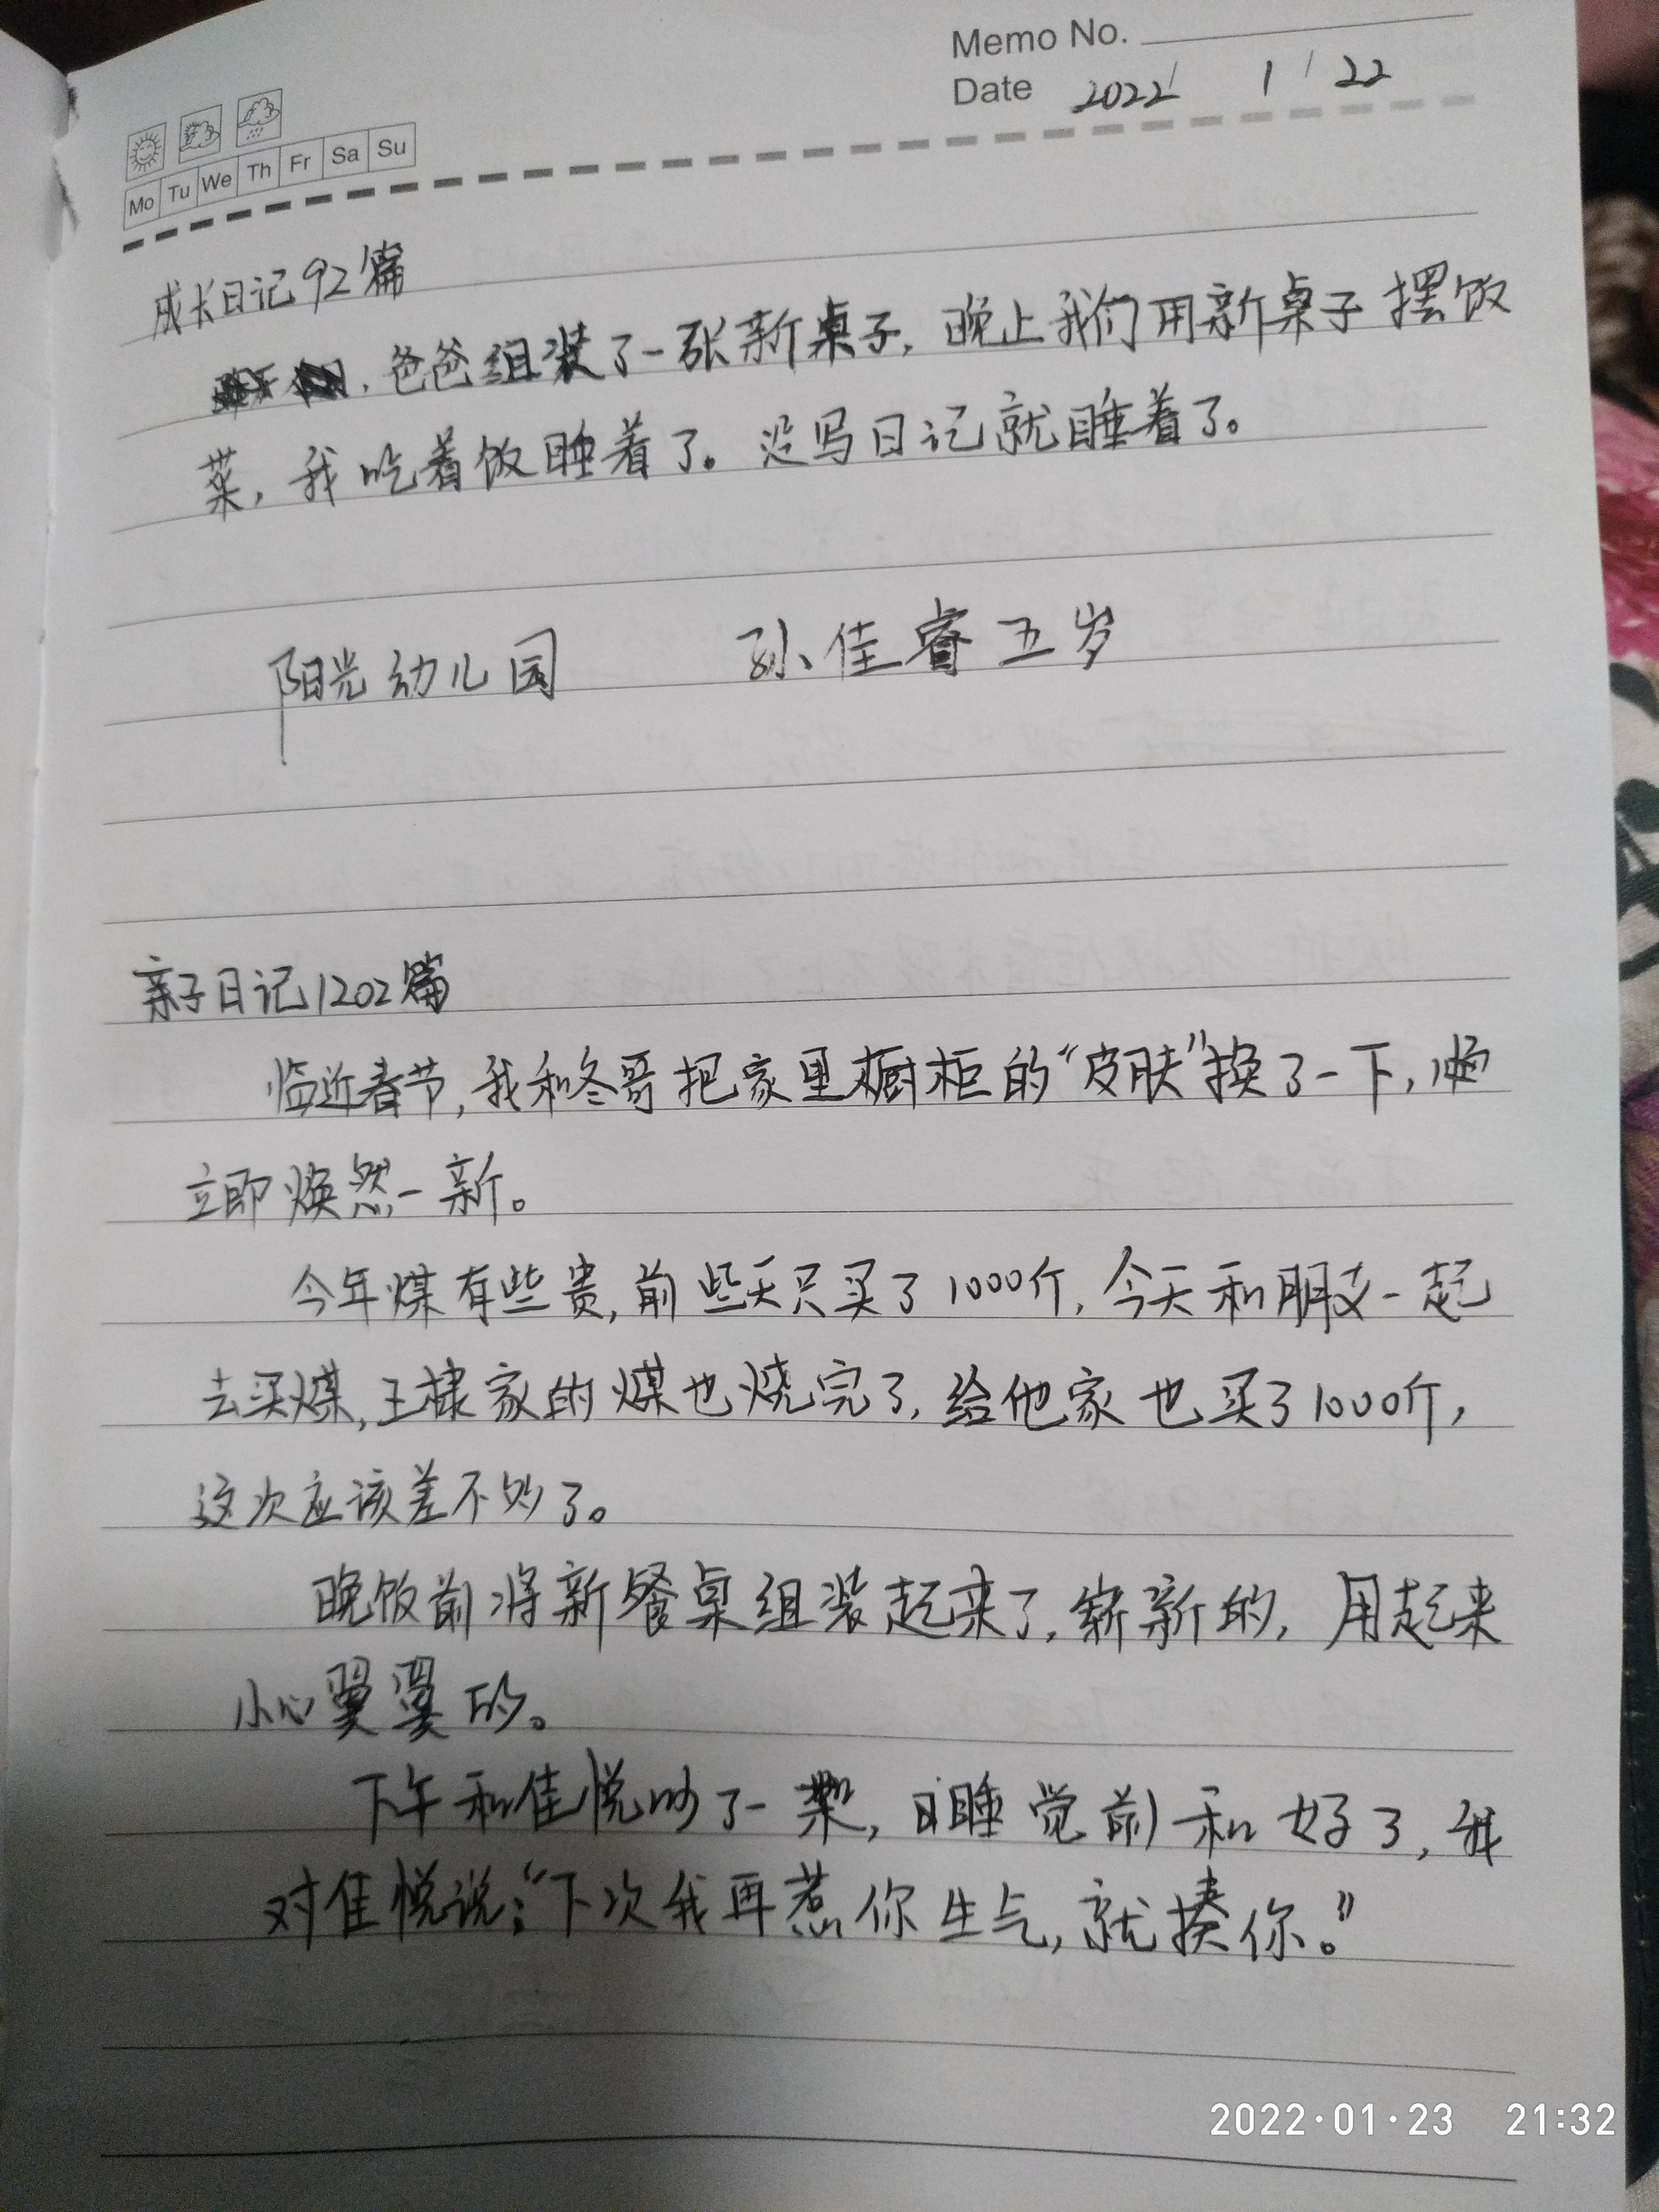 Memo No.
Date 2022 / 1 / 22
Mo Tu We Th Fr Sa Su
成长日记92篇
爸爸组装了一张新桌子，晚上我们用新桌子摆饭
菜，我吃着饭睡着了。没写日记就睡着了。
阳光幼儿园 孙佳睿五岁
亲子日记1202篇
临近春节，我和冬哥把家里橱柜的“皮肤”换了一下，
立即焕然一新。
今年煤有些贵，前些天只买了1000斤，今天和朋友一起
去买煤，王棣家的煤也烧完了，给他家也买了1000斤，
这次应该差不多了。
晚饭前将新餐桌组装起来了，崭新的，用起来
小心翼翼的。
下午和佳悦吵了一架，睡觉前和好了，我
对佳悦说：“下次我再惹你生气，就揍你。”
2022·01·23 21:32